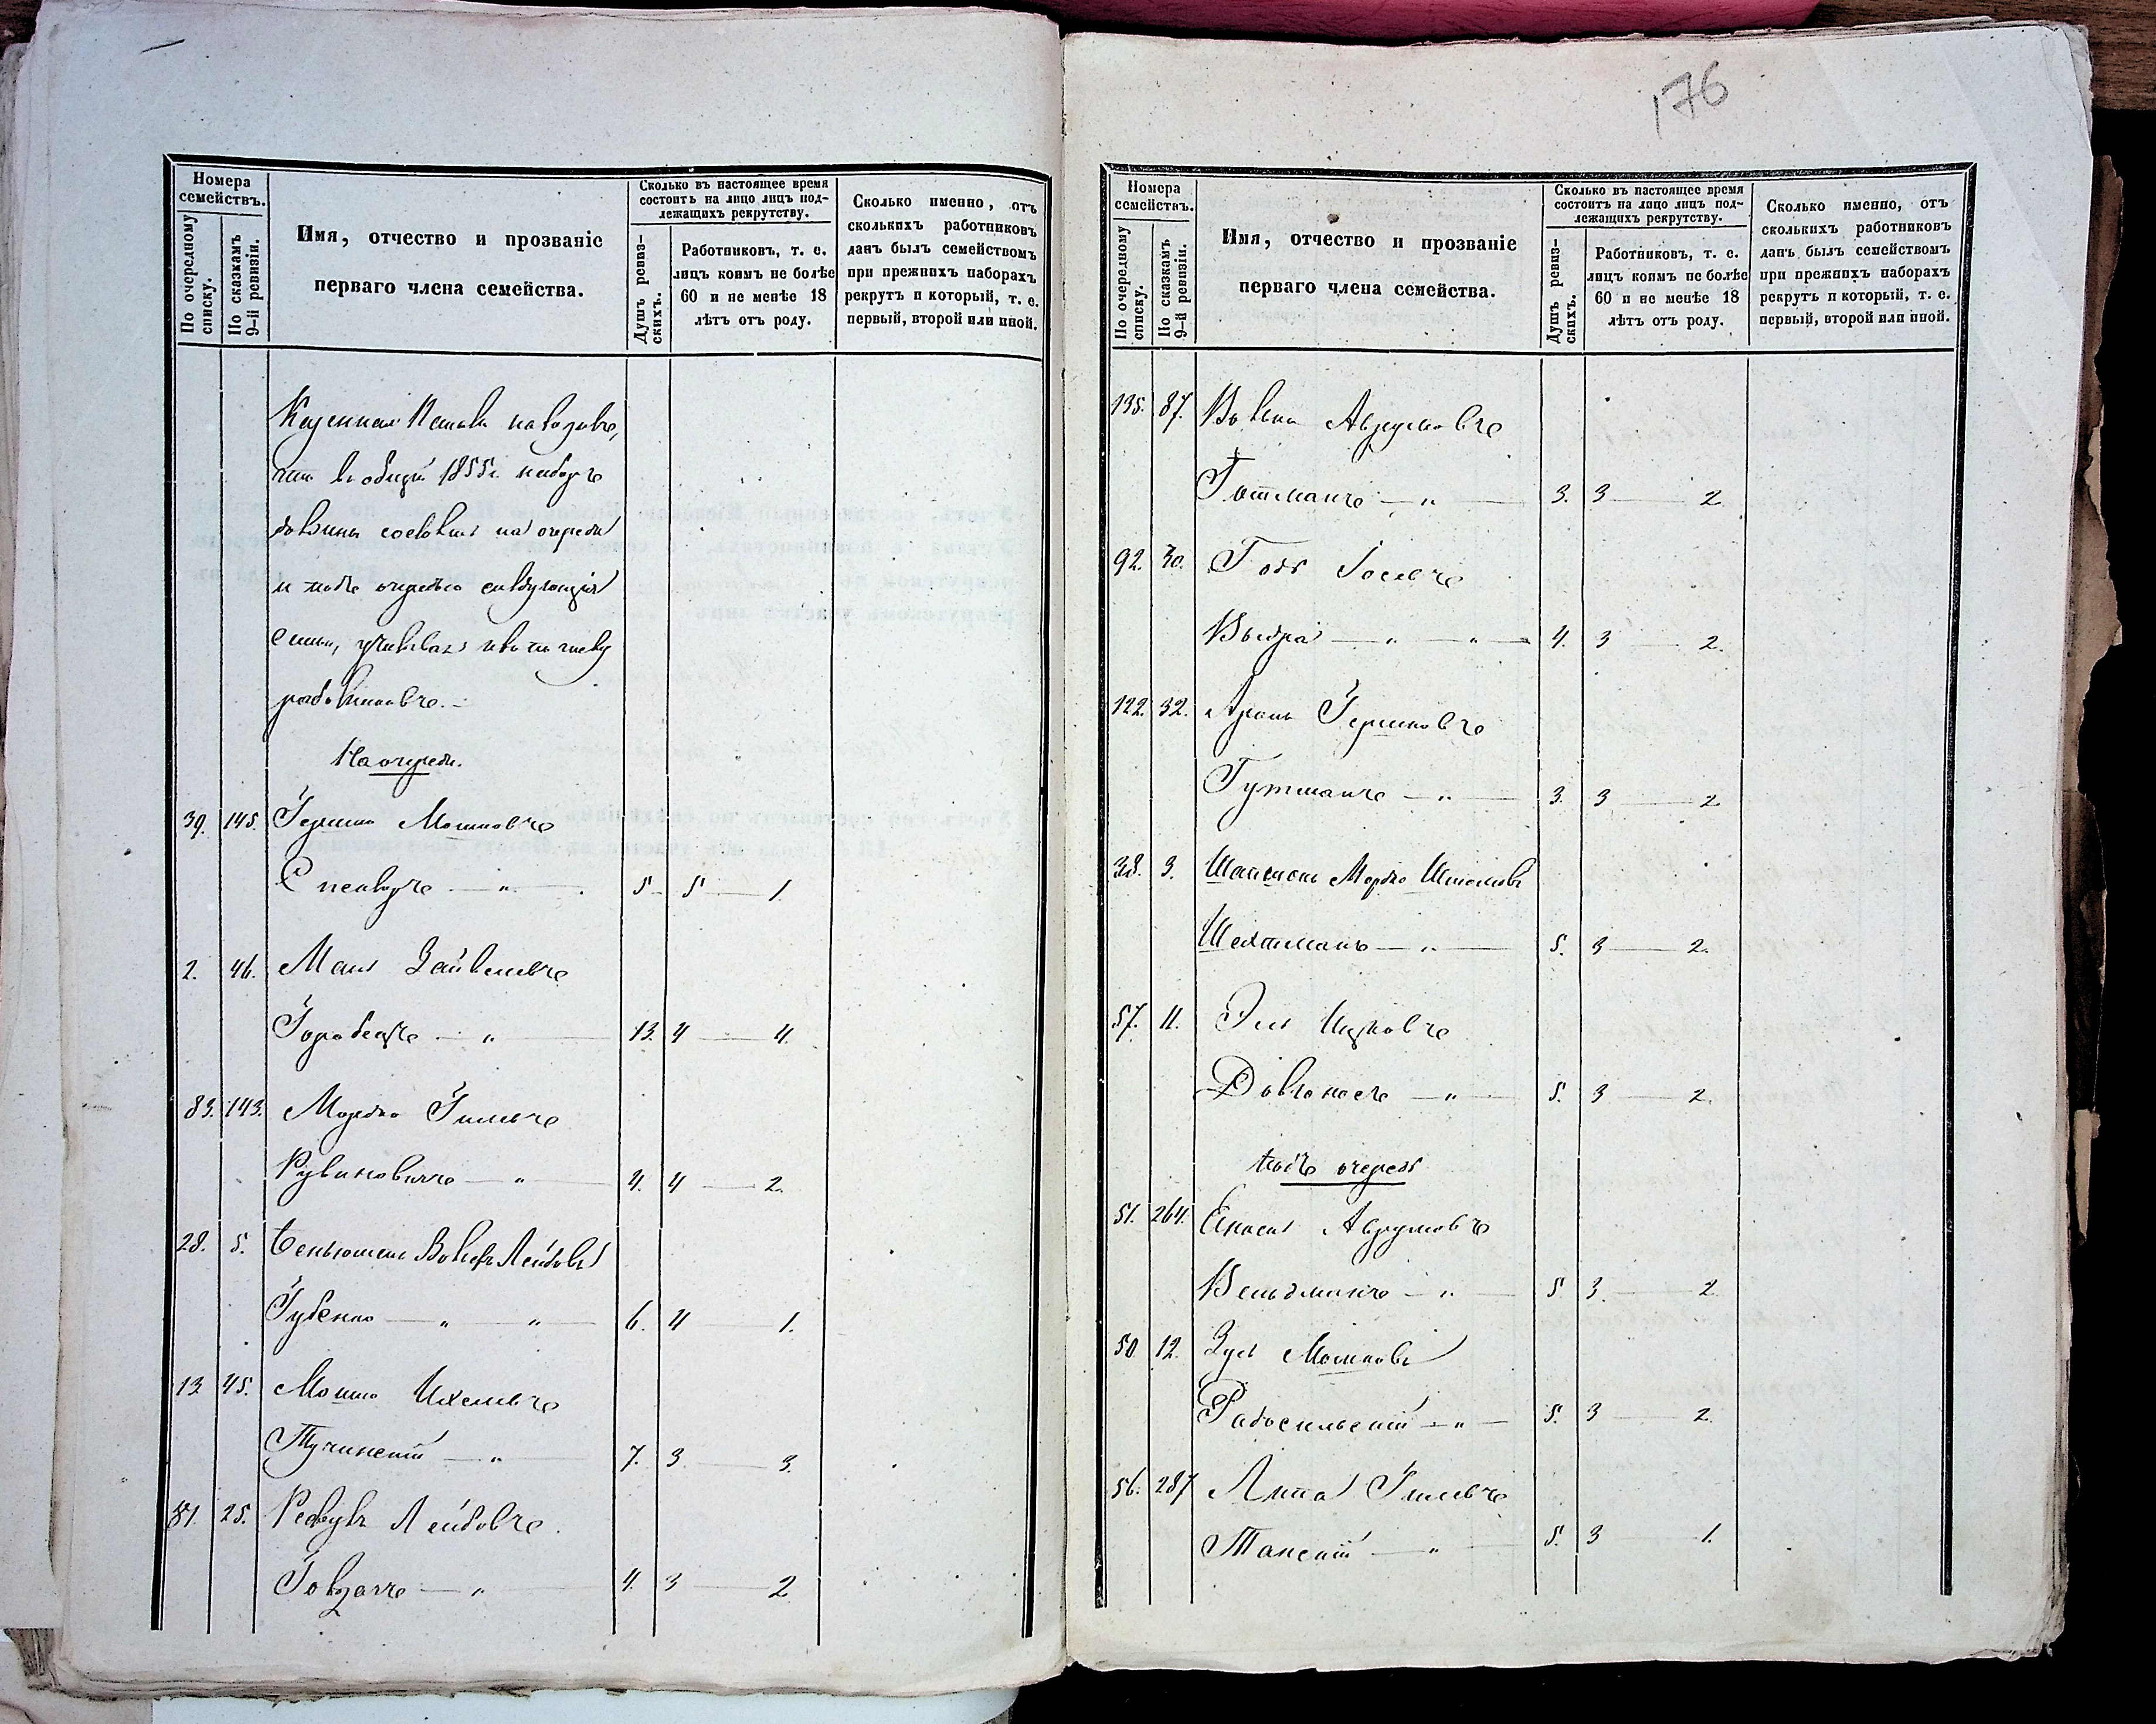 Номера семействъ.
По очередному списку.
По сказкамъ 9-й ревизіи.
Имя, отчество и прозваніе
перваго члена семейства.
Сколько въ настоящее время
состоитъ на лицо лицъ под-
лежащихъ рекрутству.
Душъ ревиз-
скихъ.
Работниковъ, т. е.
лицъ коимъ не болѣе
60 и не менѣе 18
лѣтъ отъ роду.
Сколько именно, отъ
сколькихъ работниковъ
данъ былъ семействомъ
при прежнихъ наборахъ
рекрутъ и который, т. е.
первый, второй или иной.
Казенная Палата
въ общій 1855г. наборъ
на очереди
и подъ очередью слѣдующія
семьи, по числу
работниковъ.-
На очереди.
39. 145. Гершко Мошковъ
5 5 — 1.
2. 46. Зайвелевъ
Горобецъ — " — 13. 4 — 4.
83. 143. Мордко Гилевъ
Рувиновичъ — " — 4. 4 — 2.
28. 5. Лейбовъ
Губенко — " — " — 6. 4 — 1.
13 45. Мошко Ихелевъ
Тучинскій — " — 7. 3 — 3.
81. 25. Лейбовъ.
— " — 4. 3 — 2
176
Номера
семействъ.
По очередному списку.
По сказкамъ 9-й ревизіи.
Имя, отчество и прозваніе
перваго члена семейства.
Сколько въ настоящее время
состоитъ на лицо лицъ под-
лежащихъ рекрутству.
Душъ ревиз-
скихъ.
Работниковъ, т. е.
лицъ коимъ не болѣе
60 и не менѣе 18
лѣтъ отъ роду.
Сколько именно, отъ
сколькихъ работниковъ
данъ былъ семействомъ
при прежнихъ наборахъ
рекрутъ и который, т. е.
первый, второй или иной.
135. 87. Аврумовъ
Гутманъ — " — 3. 3 — 2.
92. 30. Іосевъ
— " — " — 4. 3 — 2.
122. 32. Аронъ Гершковъ
Гутманъ — " — 3. 3 — 2
38. 3. Мордко
Шехтманъ — " — 5. 3 — 2.
57. 11. Эля Ицковъ
Довгоносъ — " — 5. 3 — 2.
подъ очередь
51. 264. Аврумовъ
Вельдманъ — " — 5 3. — 2
50 12. Зусь Мошковъ
Радосельскій — " — 5. 3 — 2.
56. 287 Липа Гилевъ
Танскій — " — 5. 3 — 1.